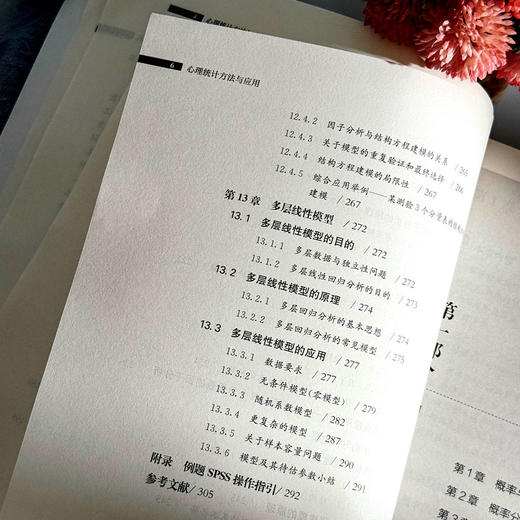 6 心理统计方法与应用
12.4.2 因子分析与结构方程建模的关系 /265
12.4.3 关于模型的重复验证和最终选择 /266
12.4.4 结构方程建模的局限性 /267
12.4.5 综合应用举例——某测验3个分量表的结构方程
建模 /267
第13章 多层线性模型 /272
13.1 多层线性模型的目的 /272
13.1.1 多层数据与独立性问题 /272
13.1.2 多层线性回归分析的目的 /273
13.2 多层线性模型的原理 /274
13.2.1 多层回归分析的基本思想 /274
13.2.2 多层回归分析的常见模型 /275
13.3 多层线性模型的应用 /277
13.3.1 数据要求 /277
13.3.2 无条件模型(零模型) /279
13.3.3 随机系数模型 /282
13.3.4 更复杂的模型 /287
13.3.5 关于样本容量问题 /290
13.3.6 模型及其待估参数小结 /291
附录 例题SPSS操作指引 /292
参考文献 /305
第一部
第1章 概率
第2章 概率分